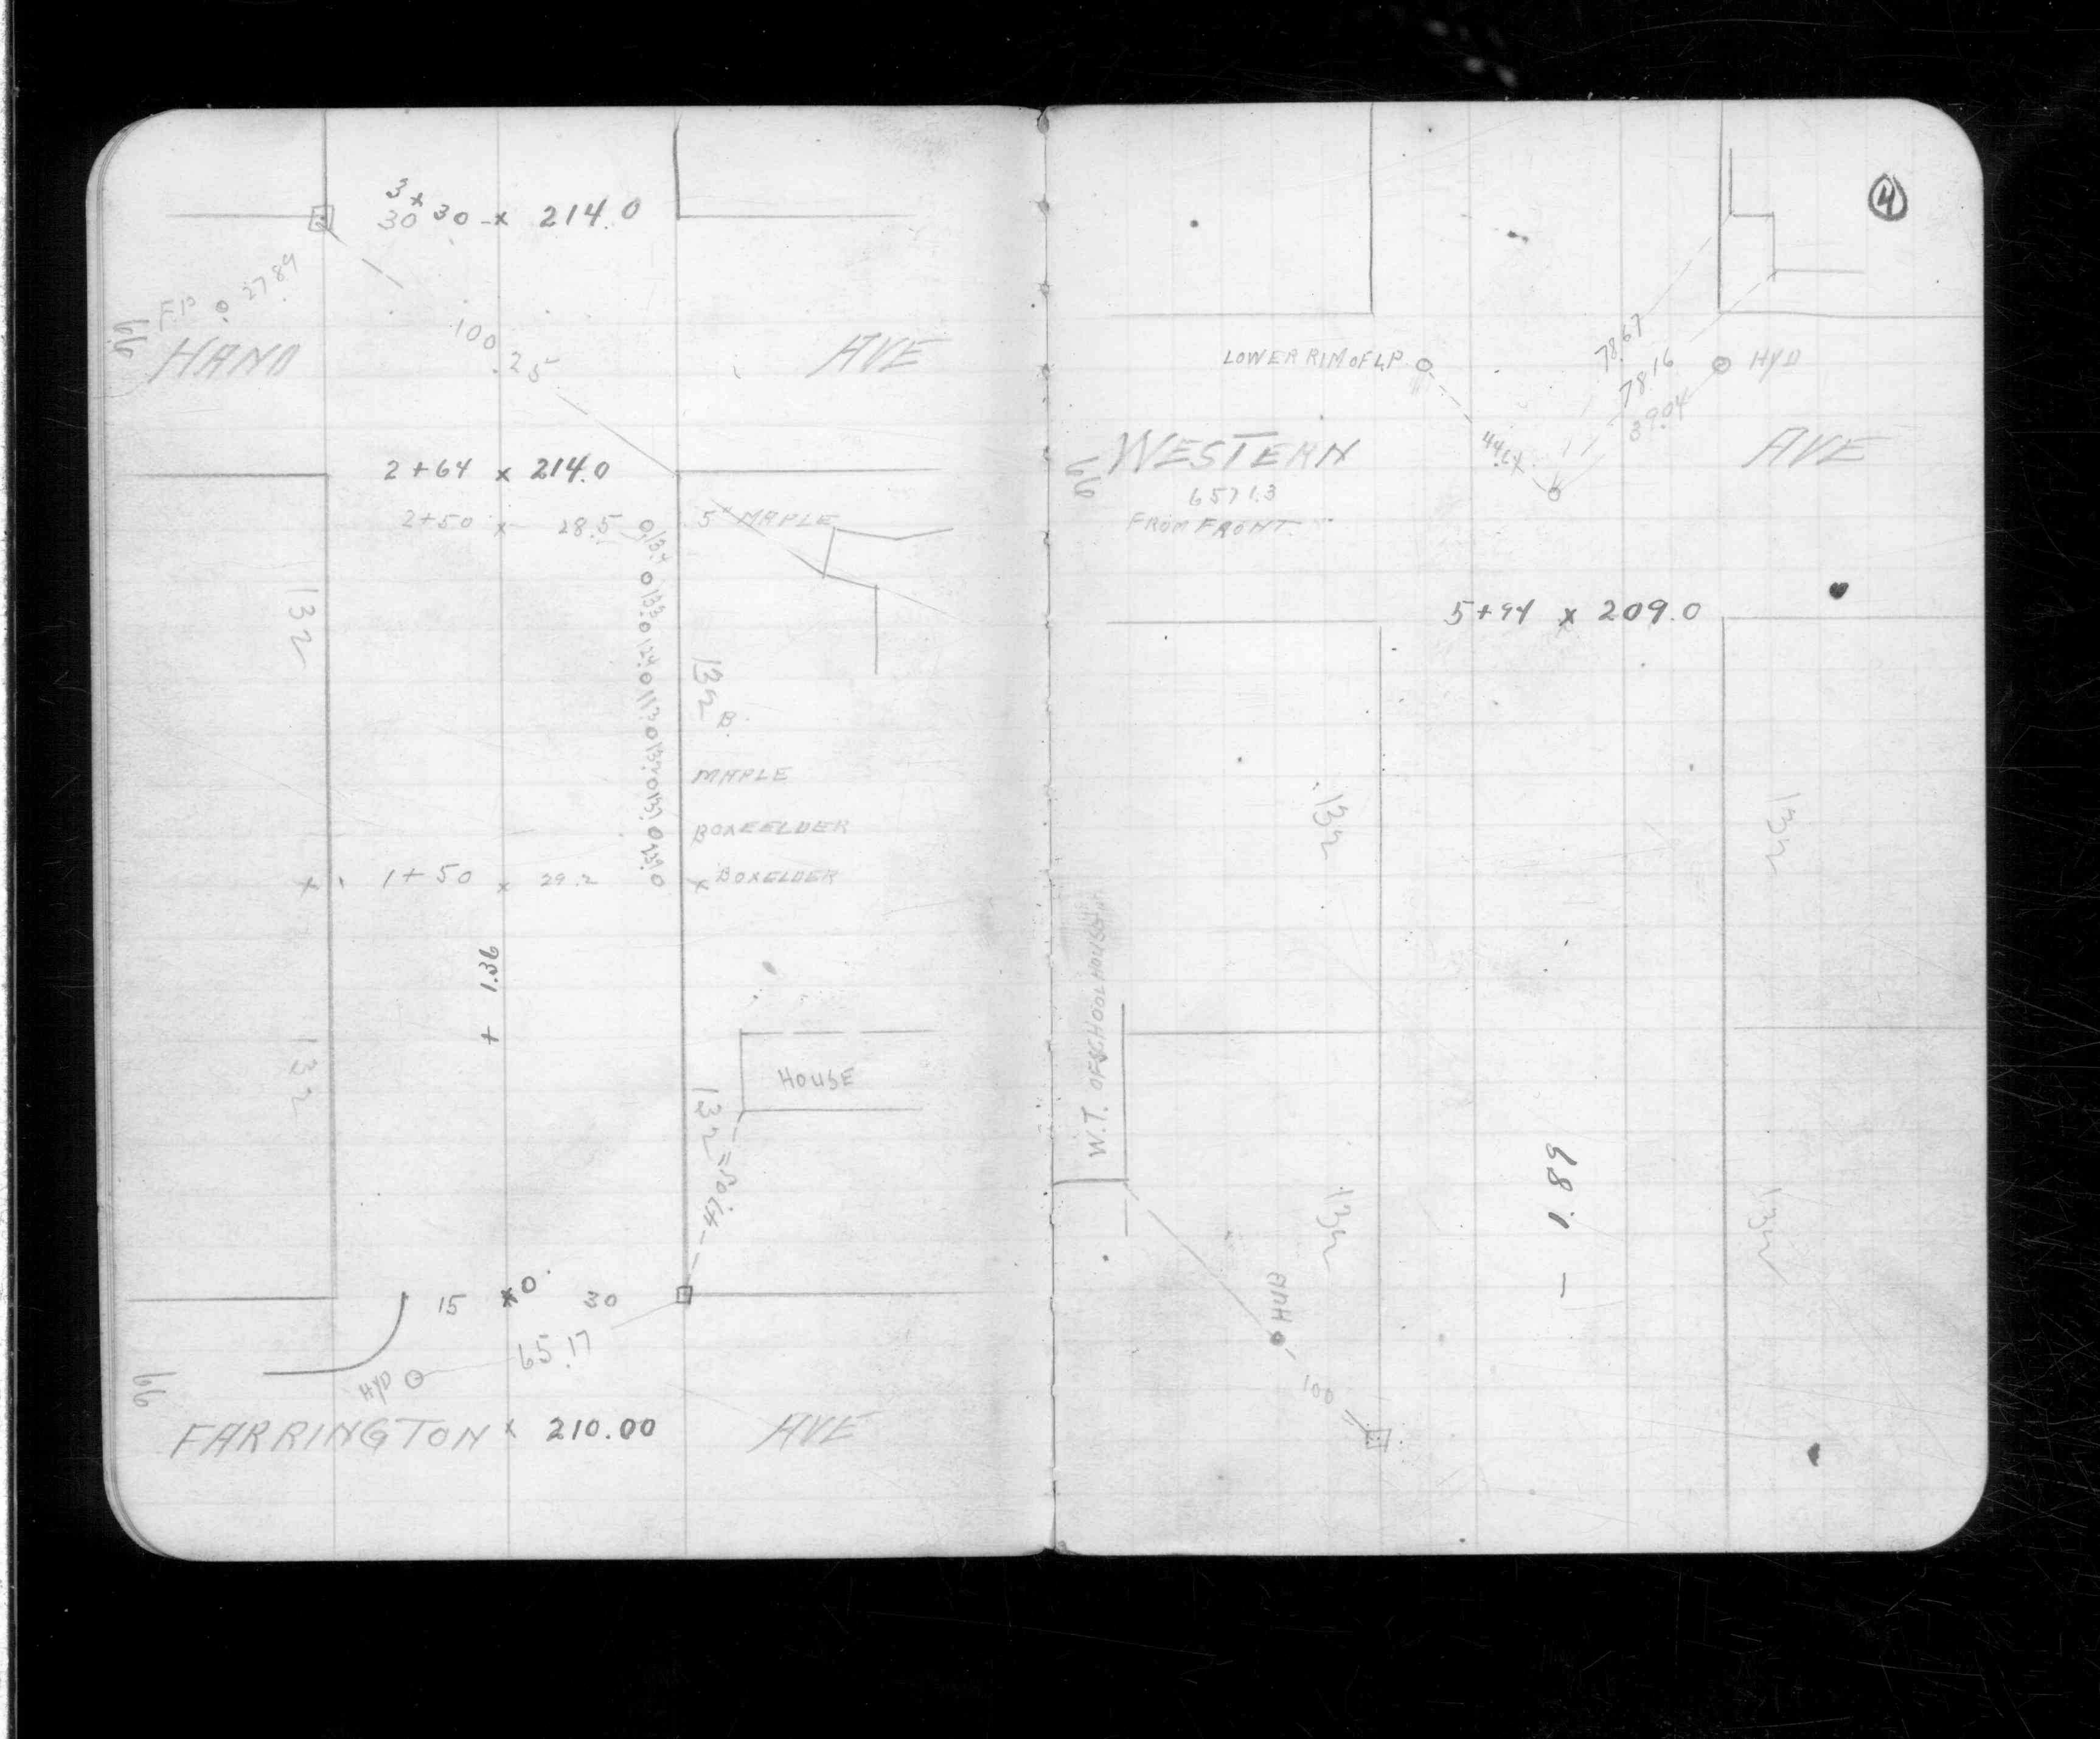 3
30 x 30 - x 214.0
F.P. 27.89
100.25
66
HAND AVE
2+64 x 214.0
2+50 x 28.5 5" MAPLE
13.4 0 13.3 0 12.4 0 11.3 0
132
132 B.
MAPLE
BOXEELDER
x 1+50 x 29.2 x BOXELDER
+ 1.36
132
HOUSE
132
15 x 0 30
65.17
HYD
66
FARRINGTON x 210.00 AVE
4
78.67
LOWER RIM OF L.P.
78.16
HYD
39.04
66
WESTERN AVE
6571.3
FROM FRONT.
5+94 x 209.0
132
132
W.T. OF SCHOOL HOUSE
- 1.89
132
132
HUB
100